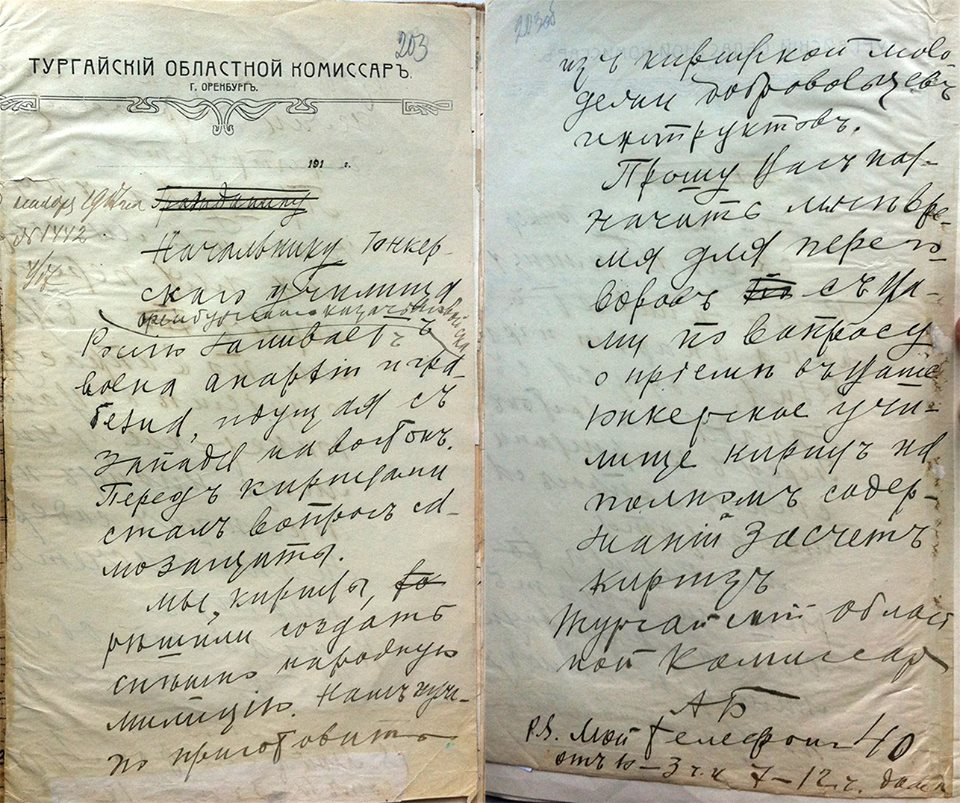 203
ТУРГАЙСКІЙ ОБЛАСТНОЙ КОМИССАРЪ.
Г. ОРЕНБУРГЪ.
191 г.
Гражданину
№ 1442.
Начальнику Юнкер-
скаго училища
Оренбургскаго казачьяго войска
Россію заливаетъ
волна анархіи и гра-
бежа, идущая съ
Запада на востокъ.
Передъ киргизами
сталъ вопросъ са-
мозащиты.
Мы, киргизы,
рѣшили создать
спѣшно народную
милицію. Намъ нуж-
но приготовить
203об
изъ киргизской моло-
дежи добровольцевъ
инструкторовъ.
Прошу Васъ наз-
начить мнѣ вре-
мя для перего-
воровъ съ Ва-
ми по вопросу
о пріемѣ въ Ваше
юнкерское учи-
лище киргизъ на
полномъ содер-
жаніи за счетъ
киргизъ
Тургайскій област
ной Комиссаръ
АБ
P.S. Мой телефонъ 40
отъ 10 – 3 ч. и 7 – 12 ч. дома